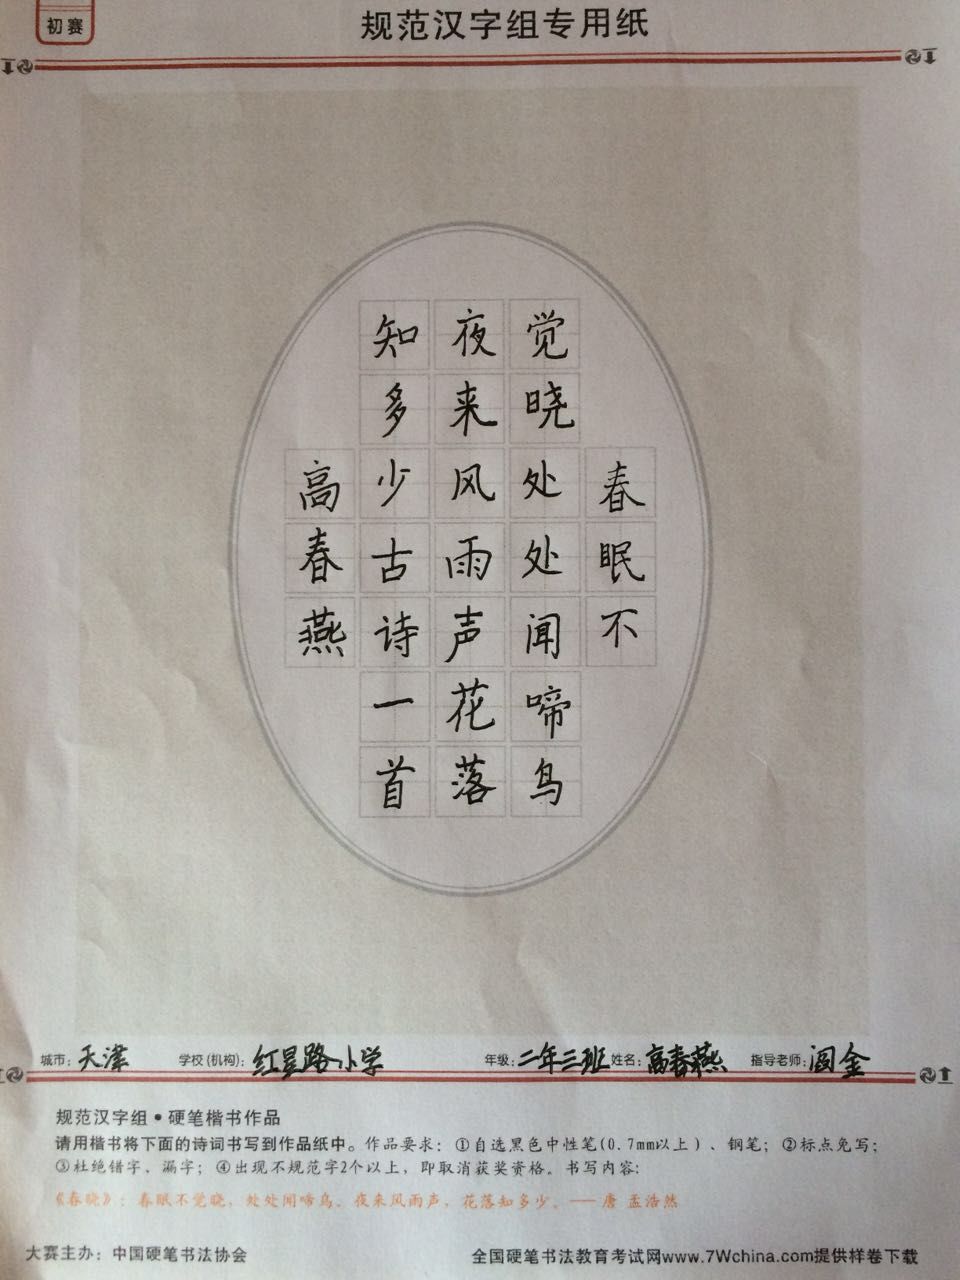 初赛
规范汉字组专用纸
春眠不
觉晓处处闻啼鸟
夜来风雨声花落
知多少古诗一首
高春燕
城市：天津 学校(机构)：红星路小学 年级：二年三班 姓名：高春燕 指导老师：阎金
规范汉字组•硬笔楷书作品
请用楷书将下面的诗词书写到作品纸中。作品要求：①自选黑色中性笔(0.7mm以上)、钢笔；②标点免写；
③杜绝错字、漏字；④出现不规范字2个以上，即取消获奖资格。书写内容：
《春晓》：春眠不觉晓，处处闻啼鸟。夜来风雨声，花落知多少。——唐 孟浩然
大赛主办：中国硬笔书法协会 全国硬笔书法教育考试网www.7Wchina.com提供样卷下载